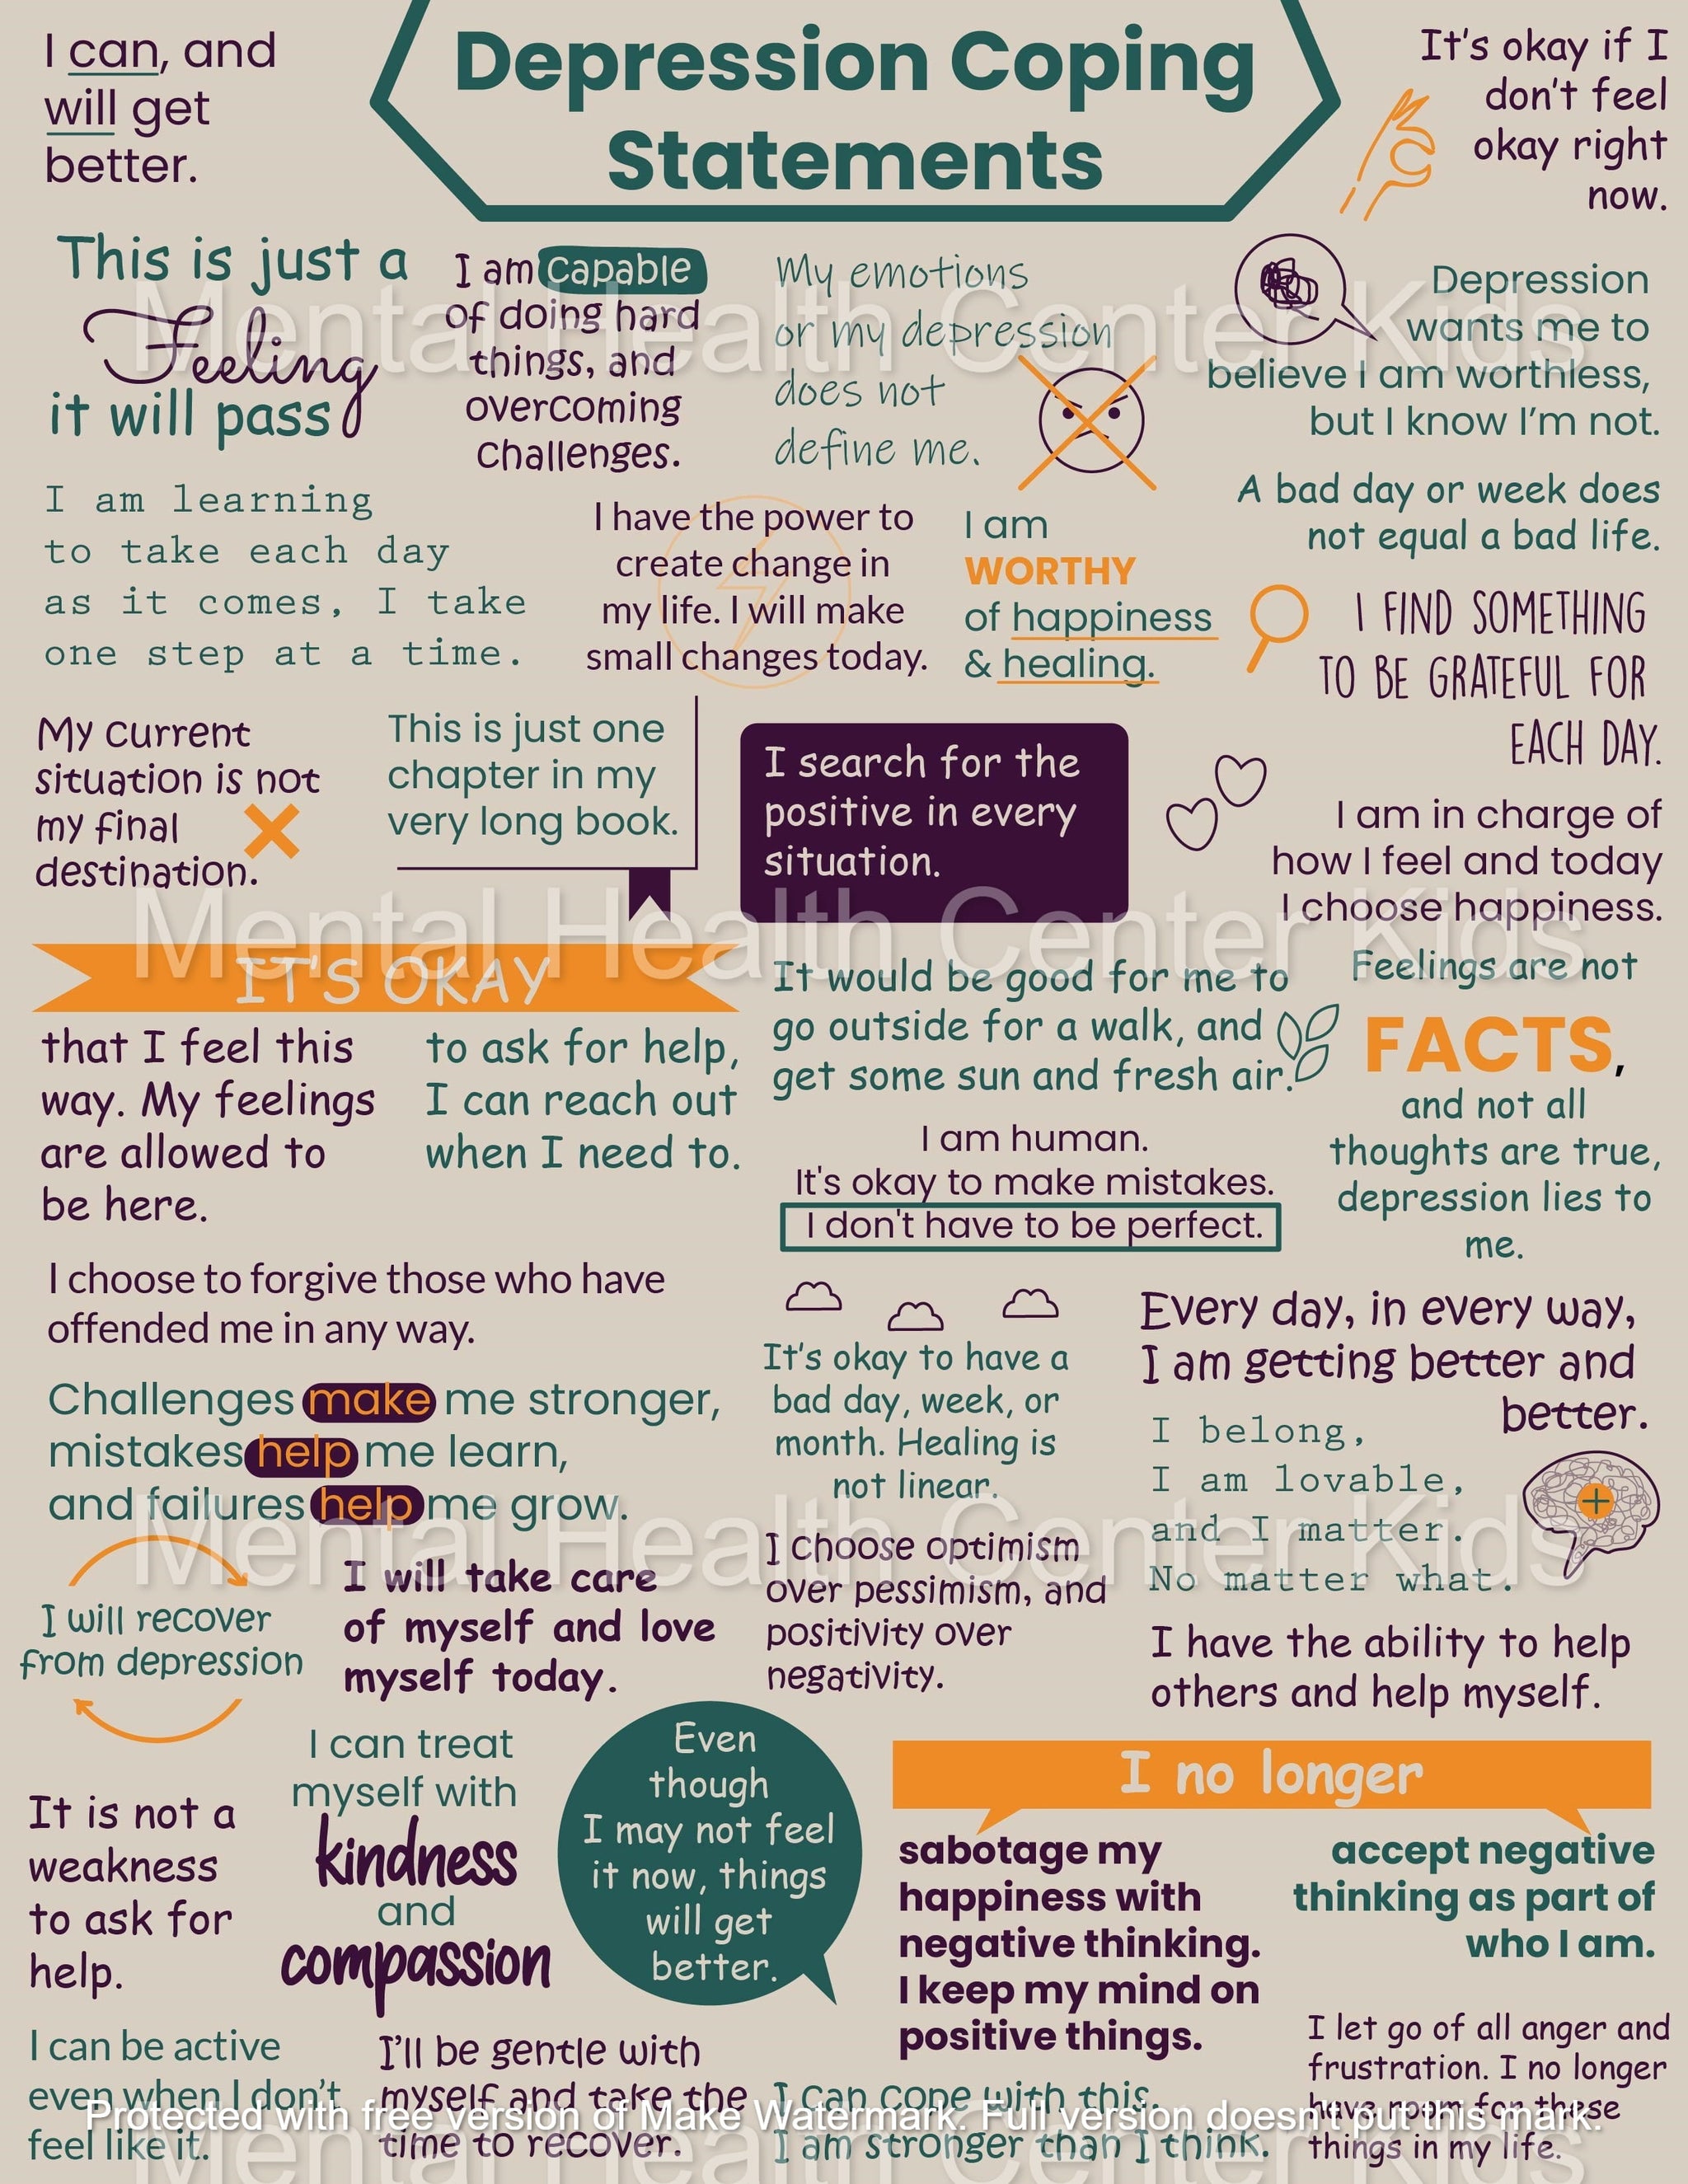 Depression Coping
Statements
I can, and
will get
better.
It's okay if I
don't feel
okay right
now.
This is just a
Feeling
it will pass
I am capable
of doing hard
things, and
overcoming
challenges.
My emotions
or my depression
does not
define me.
Depression
wants me to
believe I am worthless,
but I know I'm not.
I am learning
to take each day
as it comes, I take
one step at a time.
I have the power to
create change in
my life. I will make
small changes today.
I am
WORTHY
of happiness
& healing.
A bad day or week does
not equal a bad life.
I FIND SOMETHING
TO BE GRATEFUL FOR
EACH DAY.
My current
situation is not
my final
destination.
This is just one
chapter in my
very long book.
I search for the
positive in every
situation.
I am in charge of
how I feel and today
I choose happiness.
IT'S OKAY
that I feel this
way. My feelings
are allowed to
be here.
to ask for help,
I can reach out
when I need to.
It would be good for me to
go outside for a walk, and
get some sun and fresh air.
Feelings are not
FACTS,
and not all
thoughts are true,
depression lies to
me.
I am human.
It's okay to make mistakes.
I don't have to be perfect.
I choose to forgive those who have
offended me in any way.
Challenges make me stronger,
mistakes help me learn,
and failures help me grow.
It's okay to have a
bad day, week, or
month. Healing is
not linear.
Every day, in every way,
I am getting better and
better.
I belong,
I am lovable,
and I matter.
No matter what.
I will recover
from depression
I will take care
of myself and love
myself today.
I choose optimism
over pessimism, and
positivity over
negativity.
I have the ability to help
others and help myself.
It is not a
weakness
to ask for
help.
I can treat
myself with
kindness
and
compassion
Even
though
I may not feel
it now, things
will get
better.
I no longer
sabotage my
happiness with
negative thinking.
I keep my mind on
positive things.
accept negative
thinking as part of
who I am.
I can be active
even when I don't
feel like it.
I'll be gentle with
myself and take the
time to recover.
I can cope with this.
I am stronger than I think.
I let go of all anger and
frustration. I no longer
have room for these
things in my life.
Mental Health Center Kids
Mental Health Center Kids
Mental Health Center Kids
Mental Health Center Kids
Protected with free version of Make Watermark. Full version doesn't put this mark.